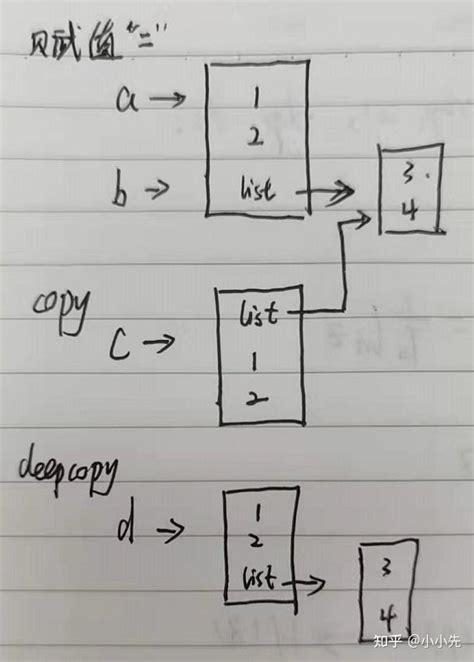 赋值 "="
a → 1
2
b → list → 3.
4
copy
list
c → 1
2
deepcopy
d → 1
2
list → 3
4
知乎 @小小先